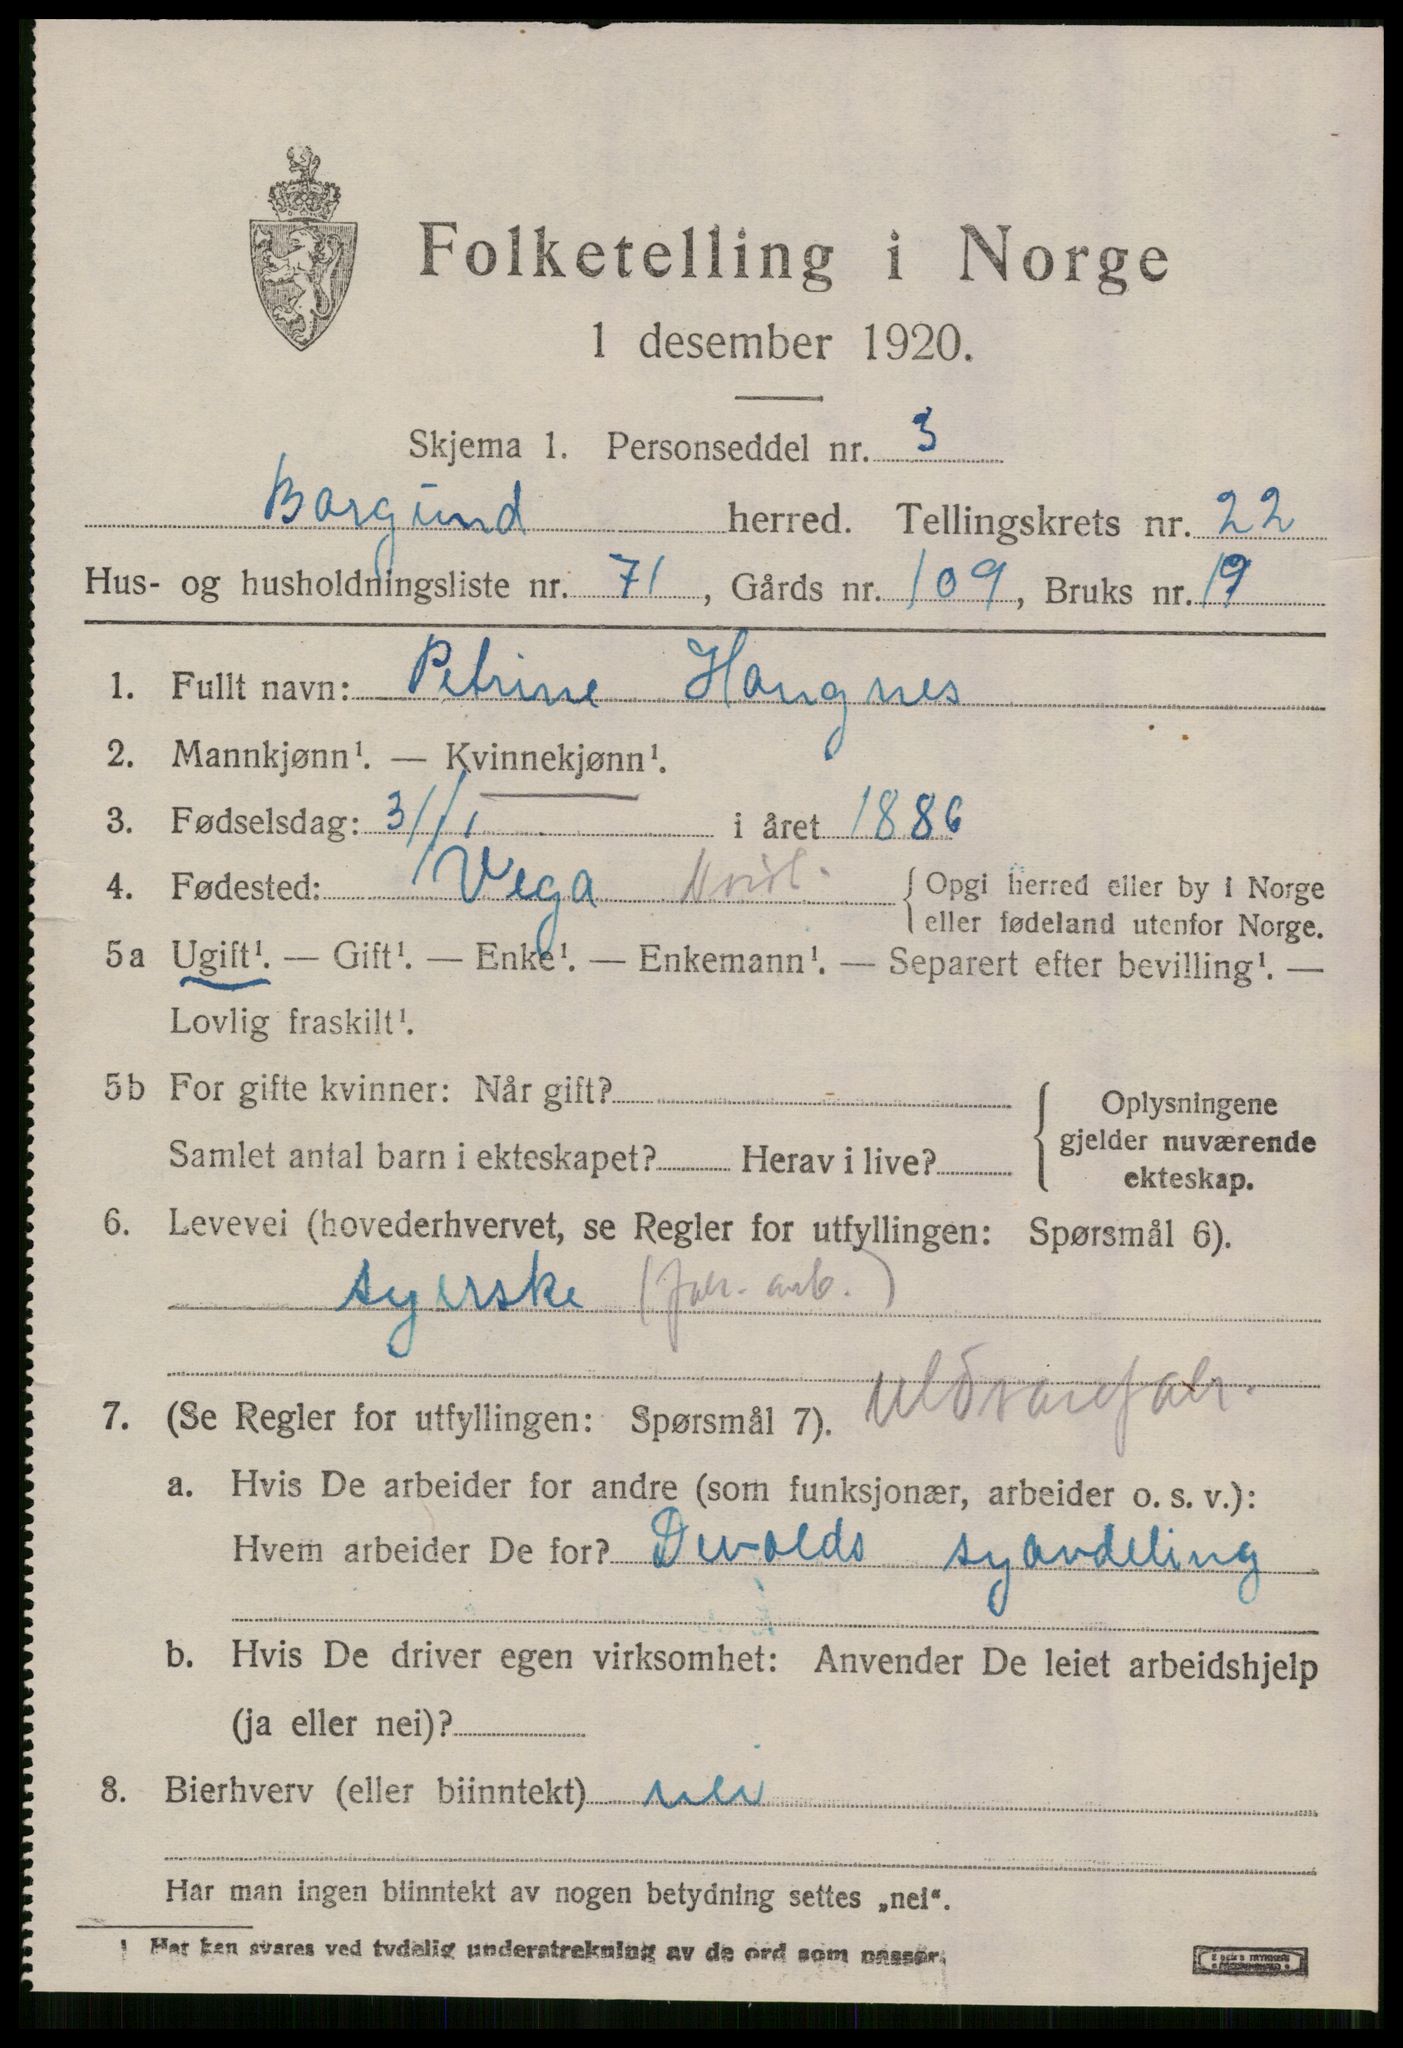 Folketelling i Norge
1 desember 1920.
Skjema 1. Personseddel nr. 3
Borgund herred. Tellingskrets nr. 22
Hus- og husholdningsliste nr. 71, Gårds nr. 109, Bruks nr. 19
1. Fullt navn: Petrine Haugnes
2. Mannkjønn¹. — Kvinnekjønn¹.
3. Fødselsdag: 31/1 i året 1886
4. Fødested: Vega { Opgi herred eller by i Norge
eller fødeland utenfor Norge.
5a Ugift¹. — Gift¹. — Enke¹. — Enkemann¹. — Separert efter bevilling¹. —
Lovlig fraskilt¹.
5b For gifte kvinner: Når gift?
Samlet antal barn i ekteskapet? Herav i live?
Oplysningene
gjelder nuværende
ekteskap.
6. Levevei (hovederhvervet, se Regler for utfyllingen: Spørsmål 6).
syerske (fabr. arb.)
Uldvarefabr.
7. (Se Regler for utfyllingen: Spørsmål 7).
a. Hvis De arbeider for andre (som funksjonær, arbeider o. s. v.):
Hvem arbeider De for? Devolds syavdeling
b. Hvis De driver egen virksomhet: Anvender De leiet arbeidshjelp
(ja eller nei)?
8. Bierhverv (eller biinntekt) nei
Har man ingen biinntekt av nogen betydning settes „nei“.
¹ Her kan svares ved tydelig understrekning av de ord som passer.